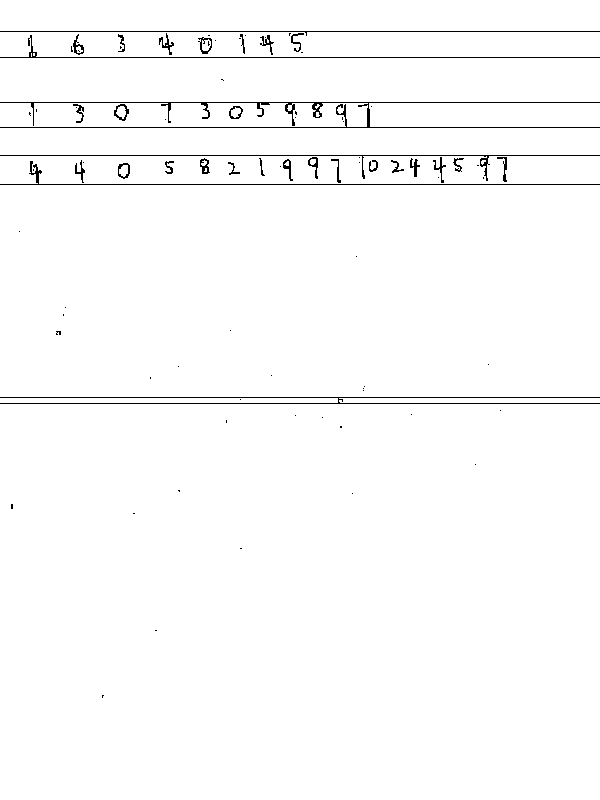 1 6 3 4 0 1 4 5
1 3 0 7 3 0 5 9 8 9 7
4 4 0 5 8 2 1 9 9 7 1 0 2 4 4 5 9 7